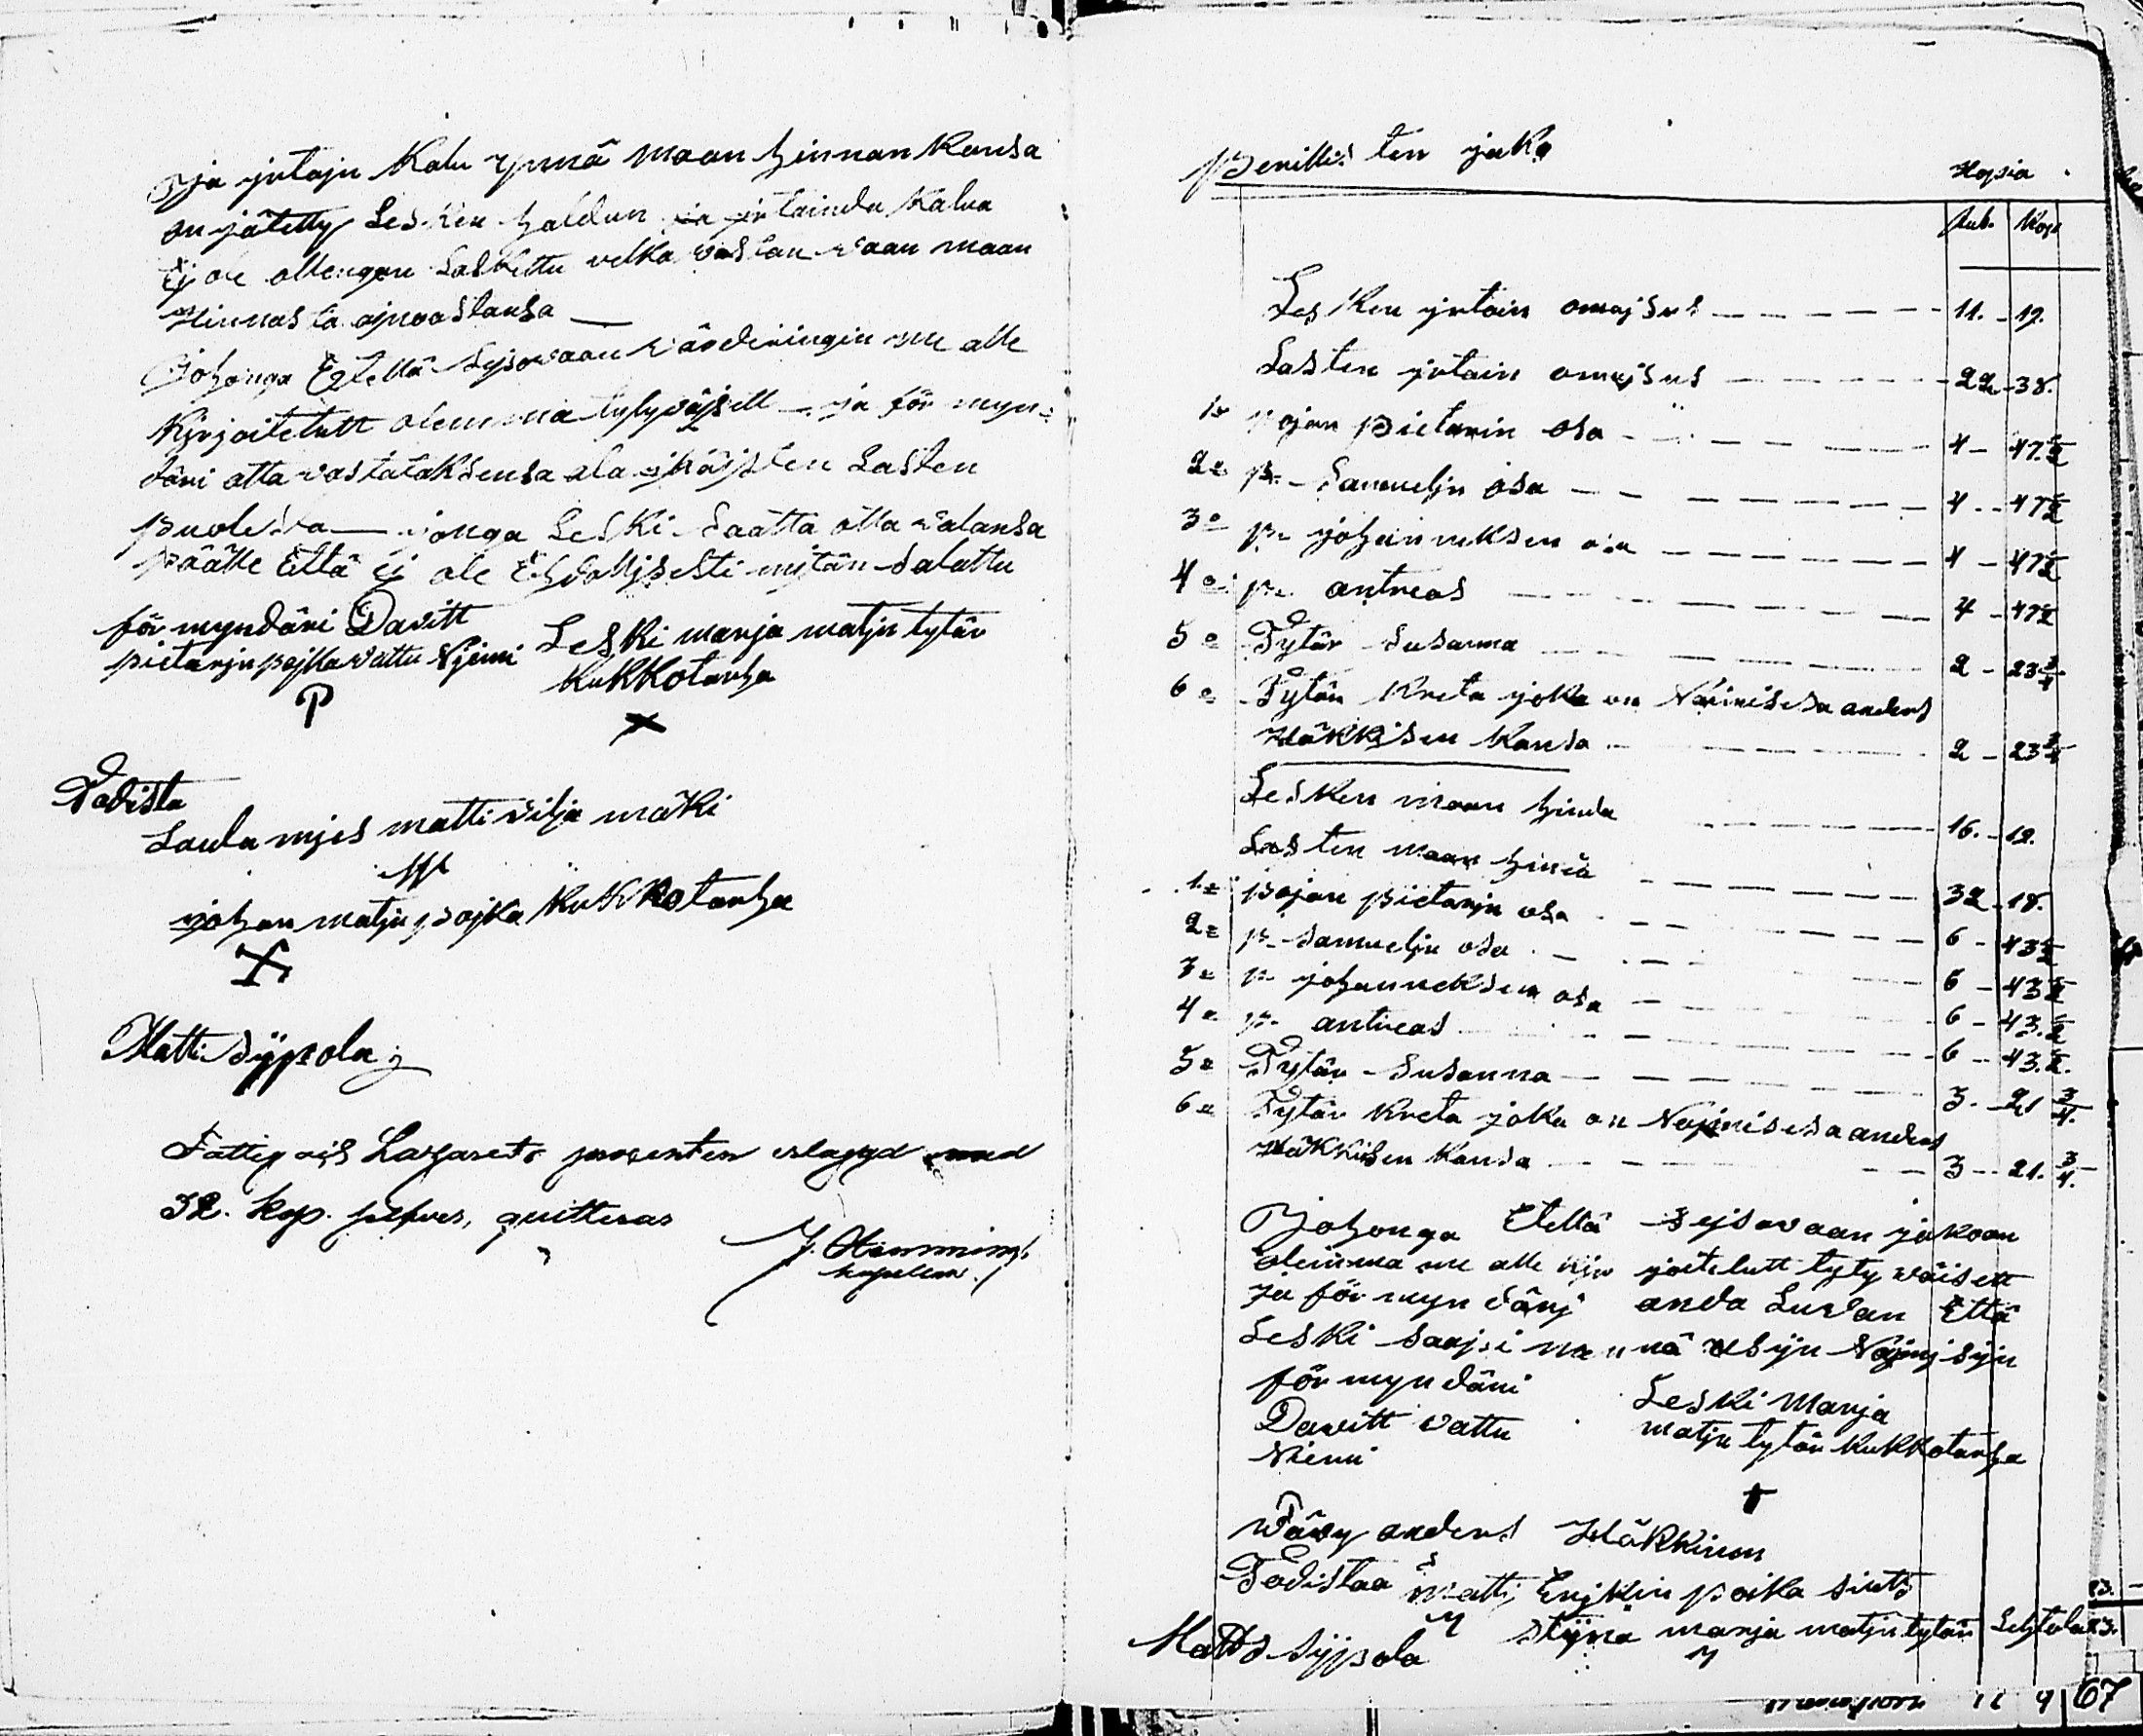 ja jrtajn Kalu ynnä maan hinnan Kansa
on jätetty Lesken haldun ja jrtainda Kalua
Ej ole ollengan Laskettu velka vastan vaan maan
Hinnasta ajnoastansa —
Johonga Edellä Sejsovaan värderingin me alle
Kirjoitetutt olemma tytyväjsett — ja för myn=
däri otta vastataksensa ala ikäjsten Lasten
puolesta — jonga Leski Saatta otta valansa
päälle Että Ej ole Ehdollisesti mitän Salattu
för myndäri Davitt
pietarin pojka vattu Njemi
P
Leski marja matjn tytär
KukKotanha
X
Todista
Lauta mjes matti vilja mäki
M
johan matjn pojka KukKotanha
X
Matti Sypola
Fattig och Lazarets procenten erlagd med
32. kop. silfver, quitteras
J. Hemming
kapellan.
Perillisten jako
Hopia
Rub. Kop
Lesken jrtain omajsus — — — 11. - 19.
Lasten jrtain omajsus — — — 22 - 38.
1e pojan Pietarin osa — — — 4 - 47 1/2
2e p. Samueljn osa — — — 4 - 47 1/2
3e p. johanneksen osa — — — 4 - 47 1/2
4e p. antreas — — — 4 - 47 1/2
5e Tytär Susanna — — — 2 - 23 3/4
6e Tytär Kreta joka on Naimisesa anders
Häkkisen Kansa — — — 2 - 23 3/4
Lesken maan hinda — — — 16. - 19.
Lasten maan hinda — — — 32 - 18.
1e pojan pietarjn osa — — — 6 - 43 1/2
2e p. Samueljn osa — — — 6 - 43 1/2
3e p. johanneksen osa — — — 6 - 43. 1/2
4e p. antreas — — — 6 - 43. 1/2.
5e Tytär Susanna — — — 3. - 21 3/4.
6e Tytär Kreta joka on Najmisesa anders
Häkkisen Kansa — — — 3 - 21. 3/4.
Johonga Edellä Sejsovaan jakoan
olemma me alle kir joitetutt tyty väisett
ja för myn därj anda Luvan Että
Leski saapi männä usijn Najmjsijn
för myndäri
Davitt vattu
Niemi
Leski Marja
matjn tytär KukKotanha
+
Vävy anders Häkkinen
Todistaa Matti Erjkin poika
M stijna marja matjn tytär Lehtola
Matts Syppola
67